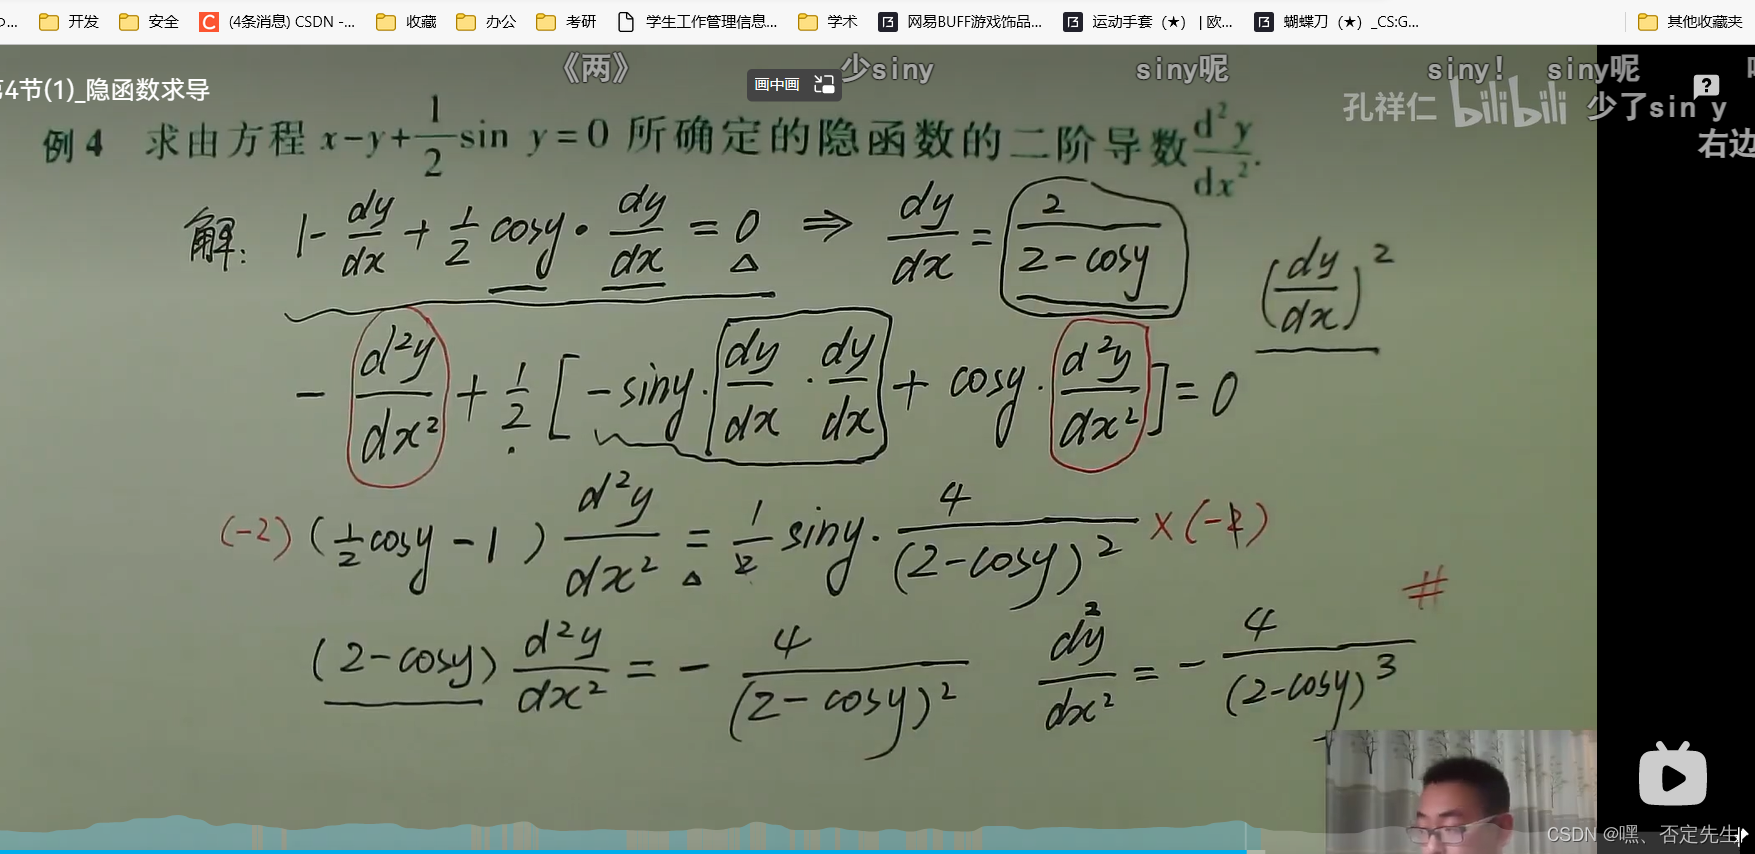 开发 安全 (4条消息) CSDN -... 收藏 办公 考研 学生工作管理信息... 学术 网易BUFF游戏饰品... 运动手套（★） | 欧... 蝴蝶刀（★）_CS:G... 其他收藏夹
《两》 少siny siny呢 siny! siny呢
4节(1)_隐函数求导 画中画
孔祥仁 bilibili 少了sin y
右边
例 4 求由方程 x-y+\frac{1}{2}sin y=0 所确定的隐函数的二阶导数\frac{d²y}{dx²}.
解: 1-\frac{dy}{dx}+\frac{1}{2}cosy·\frac{dy}{dx}=0 ⇒ \frac{dy}{dx}=\frac{2}{2-cosy}
(\frac{dy}{dx})²
-\frac{d²y}{dx²}+\frac{1}{2}[-siny·\frac{dy}{dx}·\frac{dy}{dx}+cosy·\frac{d²y}{dx²}]=0
(-2)(\frac{1}{2}cosy-1)\frac{d²y}{dx²}=\frac{1}{2}siny·\frac{4}{(2-cosy)²}
(2-cosy)\frac{d²y}{dx²}=-\frac{4}{(2-cosy)²} \frac{dy²}{dx²}=-\frac{4}{(2-cosy)³} #
CSDN @嘿、否定先生